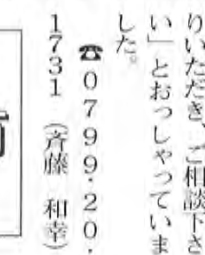 りいただき、ご相談下さ
い」とおっしゃっていま
した。
☎０７９９・２０・
１７３１　（斉藤　和幸）